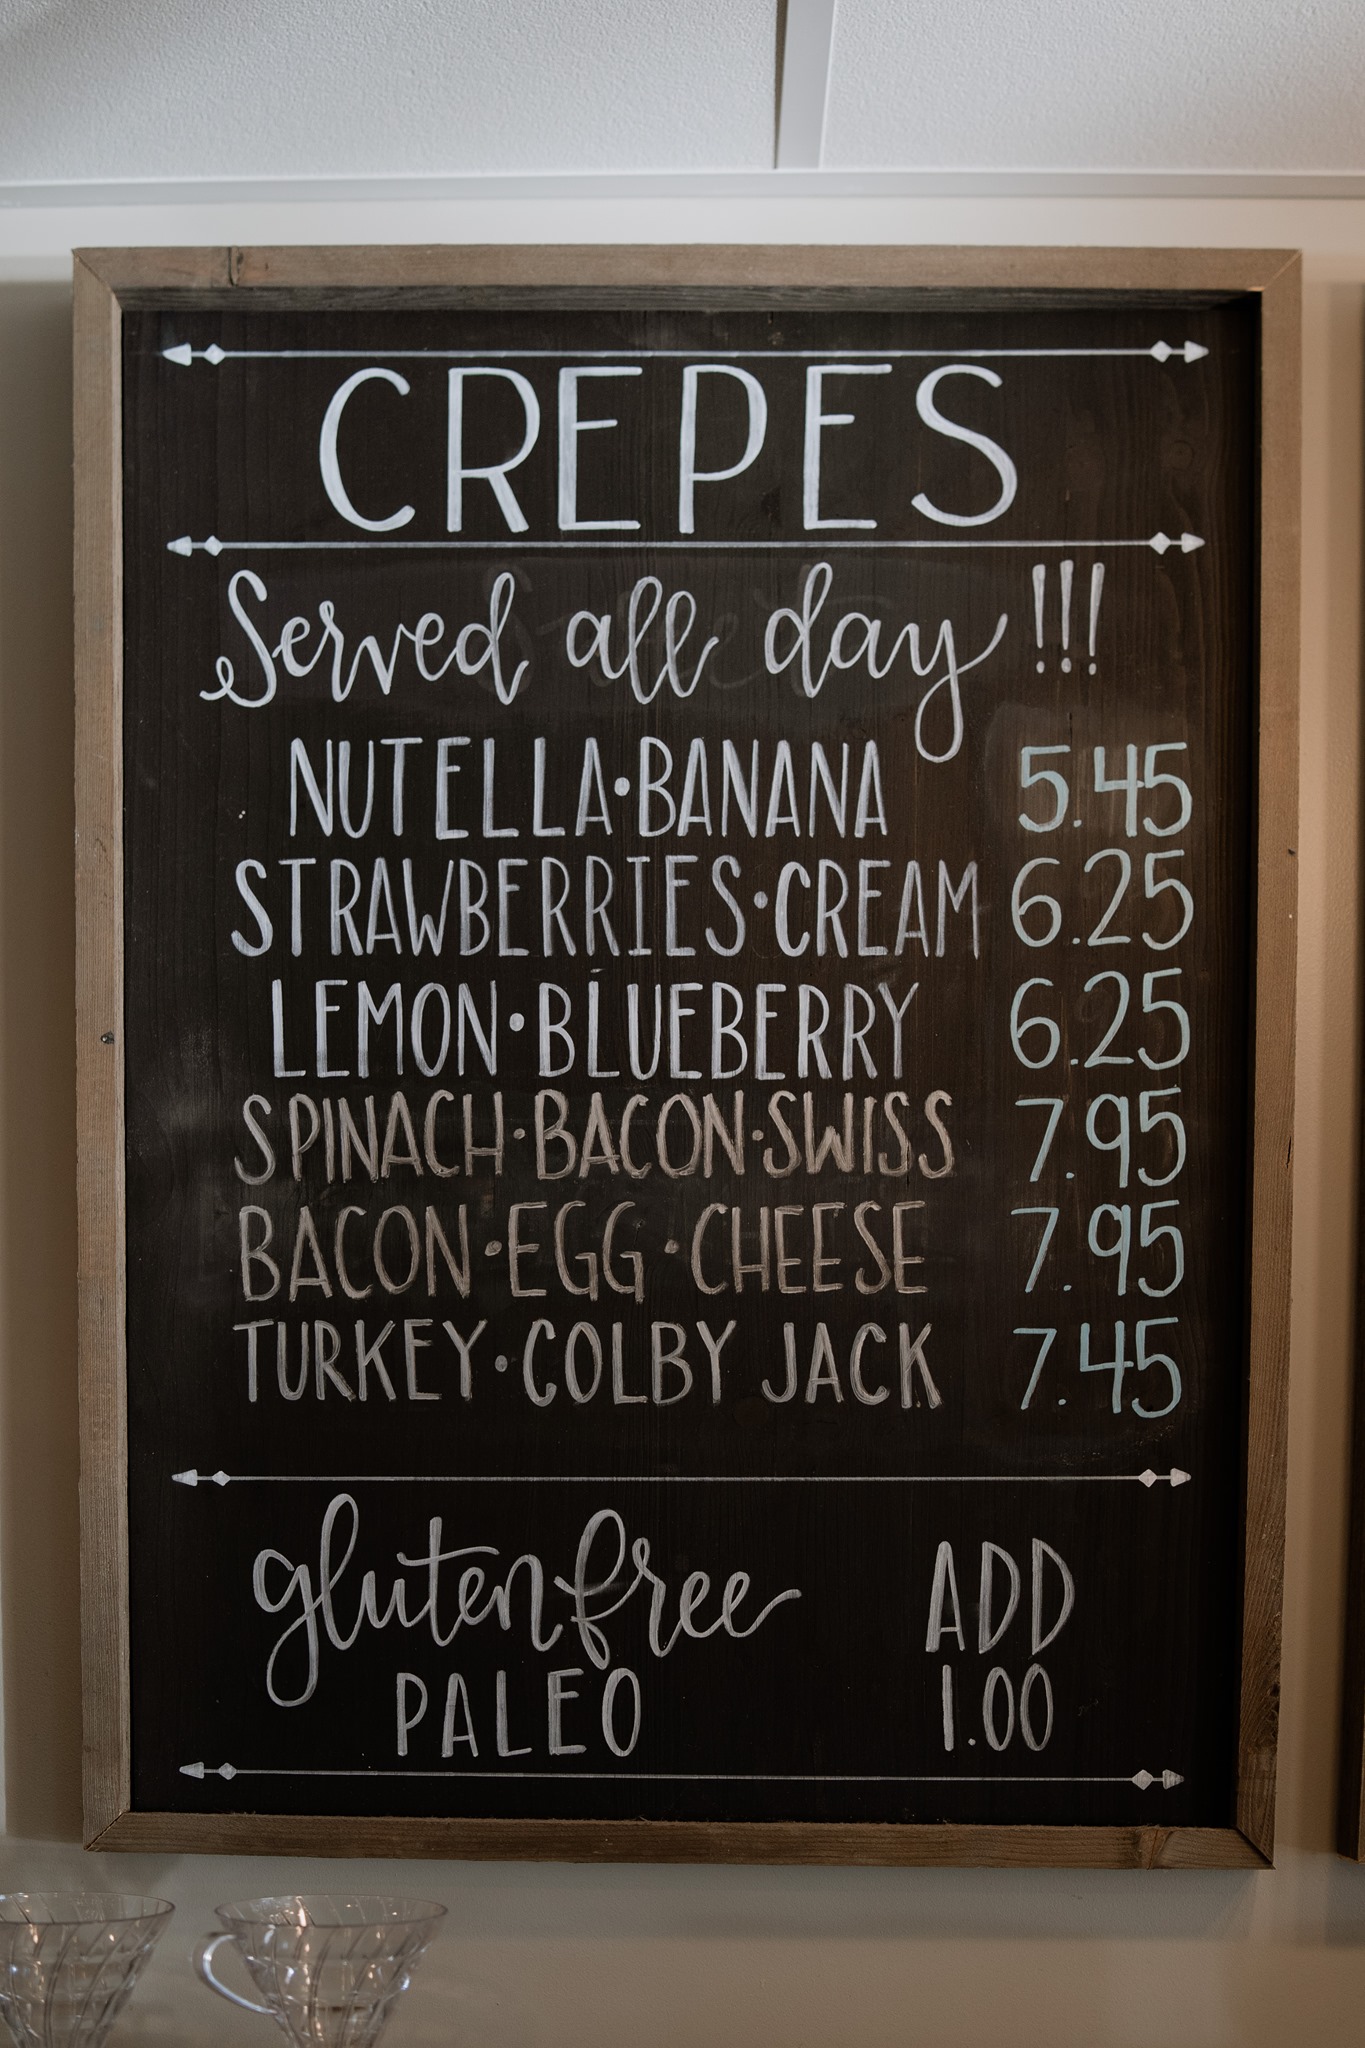 CREPES
Served all day !!!
NUTELLA•BANANA 5.45
STRAWBERRIES•CREAM 6.25
LEMON•BLUEBERRY 6.25
SPINACH•BACON•SWISS 7.95
BACON•EGG•CHEESE 7.95
TURKEY•COLBY JACK 7.45
gluten free ADD
PALEO 1.00